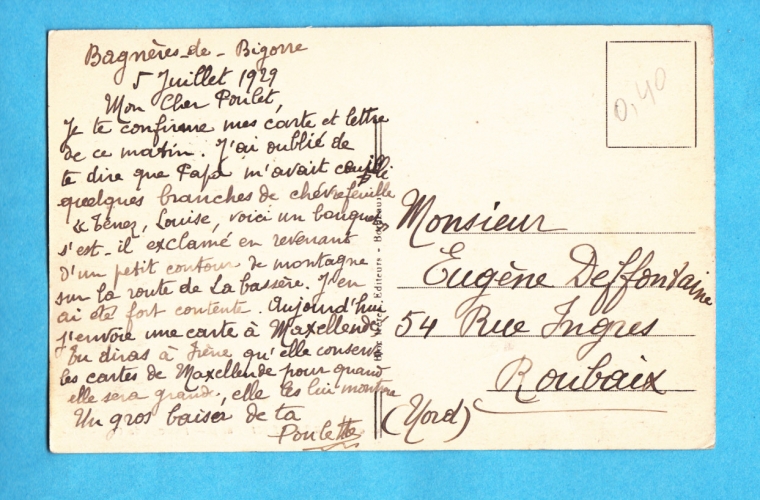 Bagnères-de-Bigorre
5 Juillet 1929
Mon Cher Poulet,
Je te confirme mes carte et lettre
de ce matin. J'ai oublié de
te dire que Papa m'avait cueilli
quelques branches de chèvrefeuille
« Tenez, Louise, voici un bouquet,
s'est-il exclamé en revenant
d'un petit contour de montagne
sur la route de La bassère. J'en
ai été fort contente. Aujourd'hui
j'envoie une carte à Maxellende
Tu diras à Irène qu'elle conserve
les cartes de Maxellende pour quand
elle sera grande, elle les lui montre
Un gros baiser de ta
Poulette
Editeurs - Bordeaux
0,40
Monsieur
Eugène Deffontaine
54 Rue Ingres
Roubaix
(Nord)